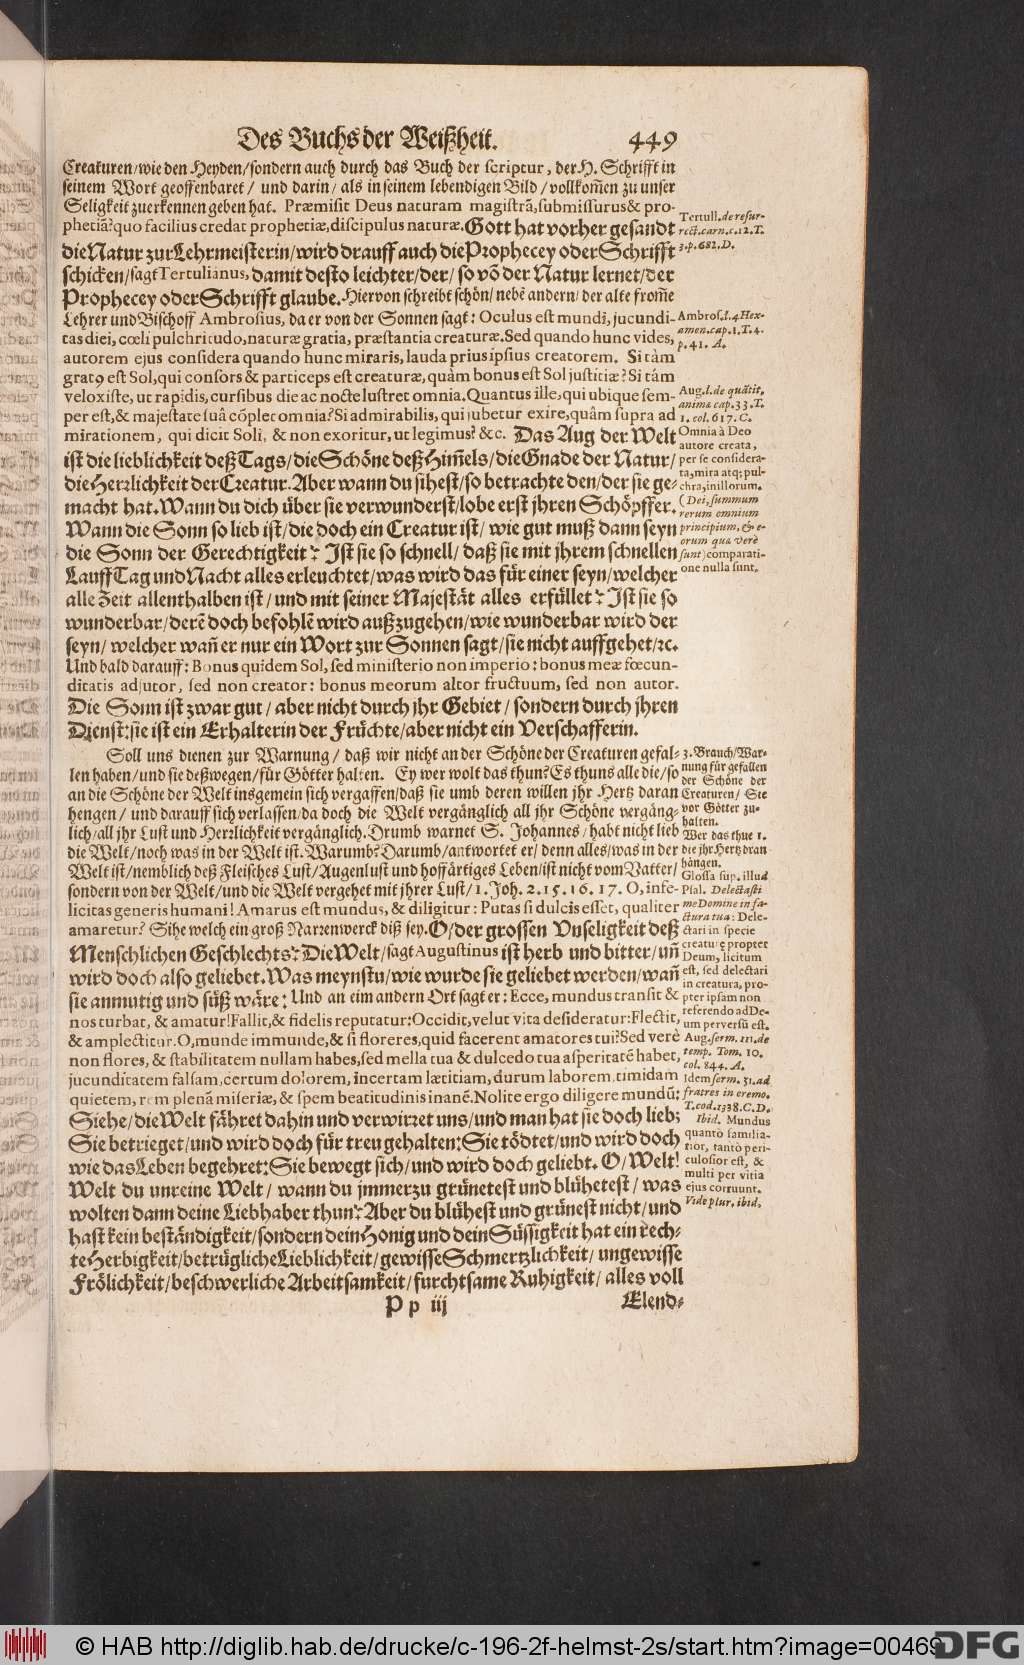 Des Buchs der Weißheit. 449
Creaturen/wie den Heyden/sondern auch durch das Buch der scriptur, der H. Schrifft in
seinem Wort geoffenbaret/ und darin/ als in seinem lebendigen Bild/vollkom̃en zu unser
Seligkeit zuerkennen geben hat. Præmisit Deus naturam magistrã, submissurus & pro-
phetiã? quo facilius credat prophetiæ, discipulus naturæ. Gott hat vorher gesandt
die Natur zur Lehrmeisterin/wird drauff auch die Prophecey oder Schrifft
schicken/sagt Tertulianus, damit desto leichter/der/ so võ der Natur lernet/der
Prophecey oder Schrifft glaube. Hiervon schreibt schön/nebẽ andern/der alte from̃e
Lehrer und Bischoff Ambrosius, da er von der Sonnen sagt: Oculus est mundi, jucundi-
tas diei, cœli pulchritudo, naturæ gratia, præstantia creaturæ. Sed quando hunc vides,
autorem ejus considera quando hunc miraris, lauda prius ipsius creatorem. Si tàm
gratꝰ est Sol, qui consors & particeps est creaturæ, quàm bonus est Sol justiciæ? Si tám
velox iste, ut rapidis, cursibus die ac nocte lustret omnia. Quantus ille, qui ubique sem-
per est, & majestate suâ cõplet omnia? Si admirabilis, qui jubetur exire, quâm supra ad
mirationem, qui dicit Soli, & non exoritur, ut legimus? &c. Das Aug der Welt
ist die lieblichkeit deß Tags/die Schöne deß Him̃els/die Gnade der Natur/
die Herrlichkeit der Creatur. Aber wann du sihest/so betrachte den/der sie ge-
macht hat. Wann du dich über sie verwunderst/lobe erst jhren Schöpffer.
Wann die Sonn so lieb ist/die doch ein Creatur ist/ wie gut muß dann seyn
die Sonn der Gerechtigkeit? Ist sie so schnell/ daß sie mit jhrem schnellen
Lauff Tag und Nacht alles erleuchtet/was wird das für einer seyn/welcher
alle Zeit allenthalben ist/und mit seiner Majestät alles erfüllet? Ist sie so
wunderbar/derẽ doch befohlẽ wird außzugehen/wie wunderbar wird der
seyn/ welcher wañ er nur ein Wort zur Sonnen sagt/sie nicht auffgehet/ꝛc.
Und bald darauff: Bonus quidem Sol, sed ministerio non imperio: bonus meæ fœcun-
ditatis adjutor, sed non creator: bonus meorum altor fructuum, sed non autor.
Die Sonn ist zwar gut/ aber nicht durch jhr Gebiet/ sondern durch jhren
Dienst: sie ist ein Erhalterin der Früchte/aber nicht ein Verschafferin.
Soll uns dienen zur Warnung/ daß wir nicht an der Schöne der Creaturen gefal-
len haben/und sie deßwegen/für Götter halten. Ey wer wolt das thun? Es thuns alle die/so
an die Schöne der Welt insgemein sich vergaffen/daß sie umb deren willen jhr Hertz daran
hengen/ und darauff sich verlassen/da doch die Welt vergänglich all jhr Schöne vergäng-
lich/all jhr Lust und Herrlichkeit vergänglich. Drumb warnet S. Johannes/habt nicht lieb
die Welt/noch was in der Welt ist. Warumb? Darumb/antwortet er/ denn alles/was in der
Welt ist/nemblich deß Fleisches Lust/Augenlust und hoffärtiges Leben/ist nicht vom Vatter/
sondern von der Welt/und die Welt vergehet mit jhrer Lust/1. Joh. 2. 15. 16. 17. O, infe-
licitas generis humani! Amarus est mundus, & diligitur: Putas si dulcis esset, qualiter
amaretur? Sihe welch ein groß Narrenwerck diß sey. O/der grossen Unseligkeit deß
Menschlichen Geschlechts? Die Welt/sagt Augustinus ist herb und bitter/uñ
wird doch also geliebet. Was meynstu/wie wurde sie geliebet werden/wañ
sie anmutig und süß wäre: Und an eim andern Ort sagt er: Ecce, mundus transit &
nos turbat, & amatur! Fallit, & fidelis reputatur: Occidit, velut vita desideratur: Flectit,
& amplectitur. O, munde immunde, & si floreres, quid facerent amatores tui? Sed verè
non flores, & stabilitatem nullam habes, sed mella tua & dulcedo tua asperitatẽ habet,
jucunditatem falsam, certum dolorem, incertam lætitiam, durum laborem, timidam
quietem, rem plenã miseriæ, & spem beatitudinis inanẽ. Nolite ergo diligere mundũ:
Siehe/die Welt fähret dahin und verwirret uns/und man hat sie doch lieb;
Sie betrieget/und wird doch für treu gehalten: Sie tödtet/und wird doch
wie das Leben begehret: Sie bewegt sich/und wird doch geliebt. O/Welt!
Welt du unreine Welt/ wann du jmmerzu grünetest und blühetest/ was
wolten dann deine Liebhaber thun? Aber du blühest und grünest nicht/und
hast kein beständigkeit/sondern dein Honig und dein Süssigkeit hat ein rech-
te Herbigkeit/betrügliche Lieblichkeit/gewisse Schmertzlichkeit/ungewisse
Frölichkeit/beschwerliche Arbeitsamkeit/furchtsame Ruhigkeit/alles voll
Pp iij Elend-
Tertull. de resur-
rect. carn. c. 12. T.
3. p. 682. D.
Ambros. l. 4 Hex-
amen. cap. 1. T. 4.
p. 41. A.
Aug. l. de quãtit.
animæ cap. 33. T.
1. col. 617. C.
Omnia à Deo
autore creata,
per se considera-
ta, mira atq; pul-
chra, in illorum.
(Dei, summum
rerum omnium
principium, & e-
orum quæ verè
sunt) comparati-
one nulla sunt.
3. Brauch/War-
nung für gefallen
der Schöne der
Creaturen/ Sie
vor Götter zu-
halten.
Wer das thue 1.
die jhr Hertz dran
hängen.
Glossa sup. illud
Psal. Delectasti
me Domine in fa-
ctura tua: Dele-
ctari in specie
creaturę propter
Deum, licitum
est, sed delectari
in creatura, pro-
pter ipsam non
referendo ad De-
um perversũ est.
Aug. serm. 111. de
temp. Tom. 10.
col. 844. A.
Idem serm. 31. ad
fratres in eremo.
T. eod. 1338. C. D.
Ibid. Mundus
quantò familia-
rior, tantò peri-
culosior est, &
multi per vitia
ejus corruunt.
Vide plur. ibid.
© HAB http://diglib.hab.de/drucke/c-196-2f-helmst-2s/start.htm?image=00469
DFG